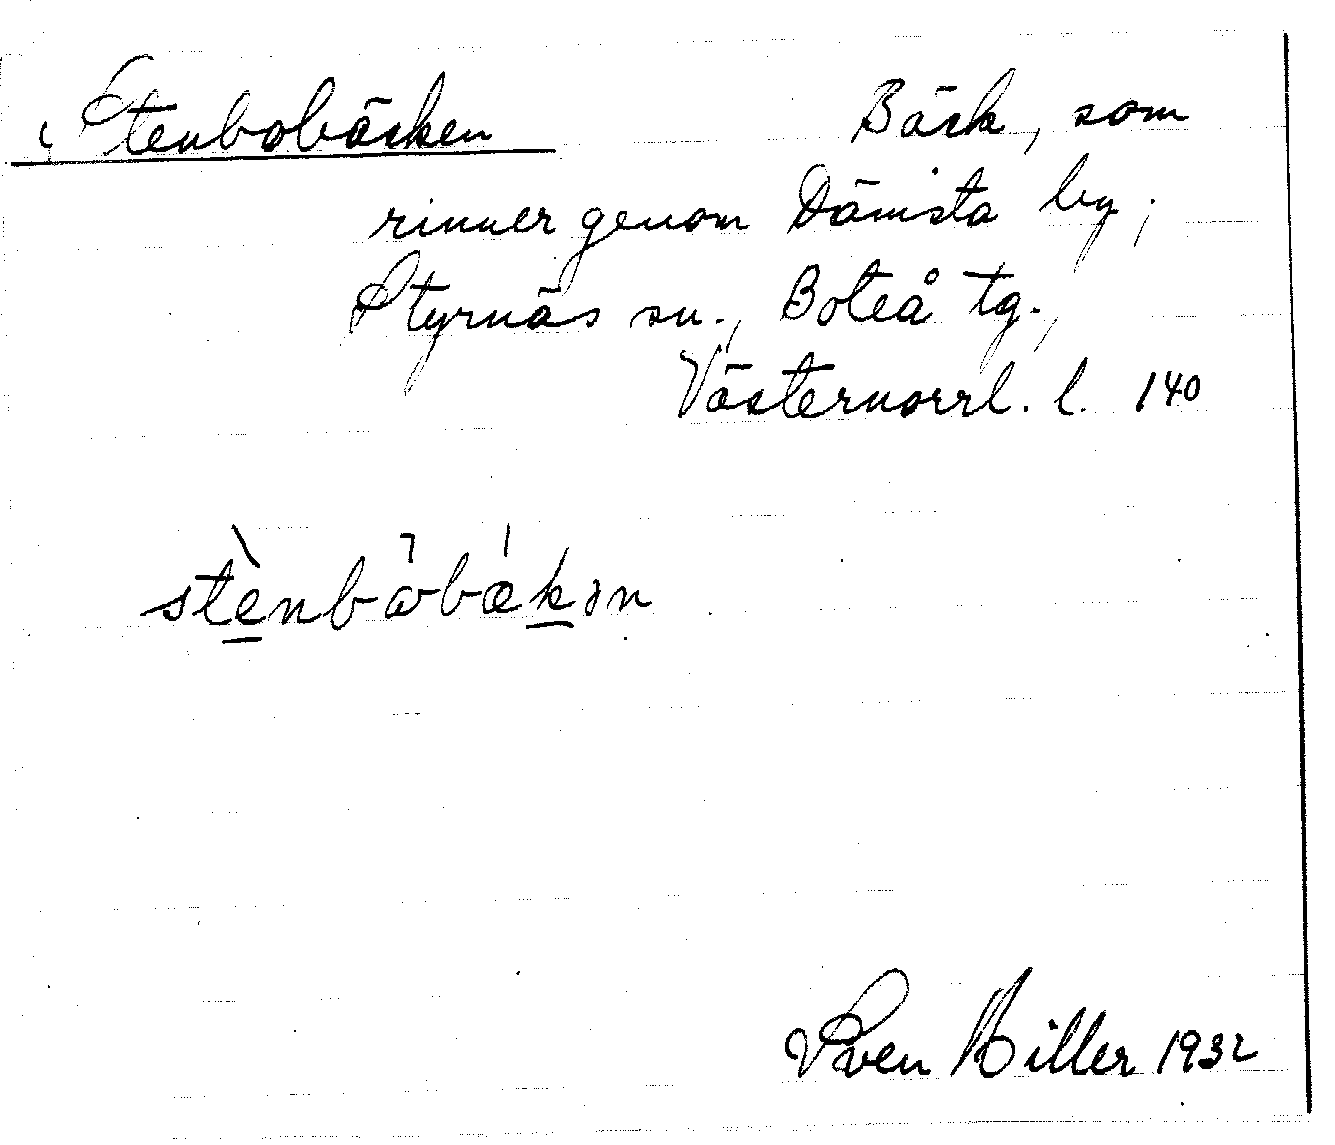 Stenbobäcken Bäck, som
rinner genom Dämsta by,
Styrnäs sn., Boteå tg.,
Västernorrl. l. 140
stènbå̀bækən
Sven Hiller 1932